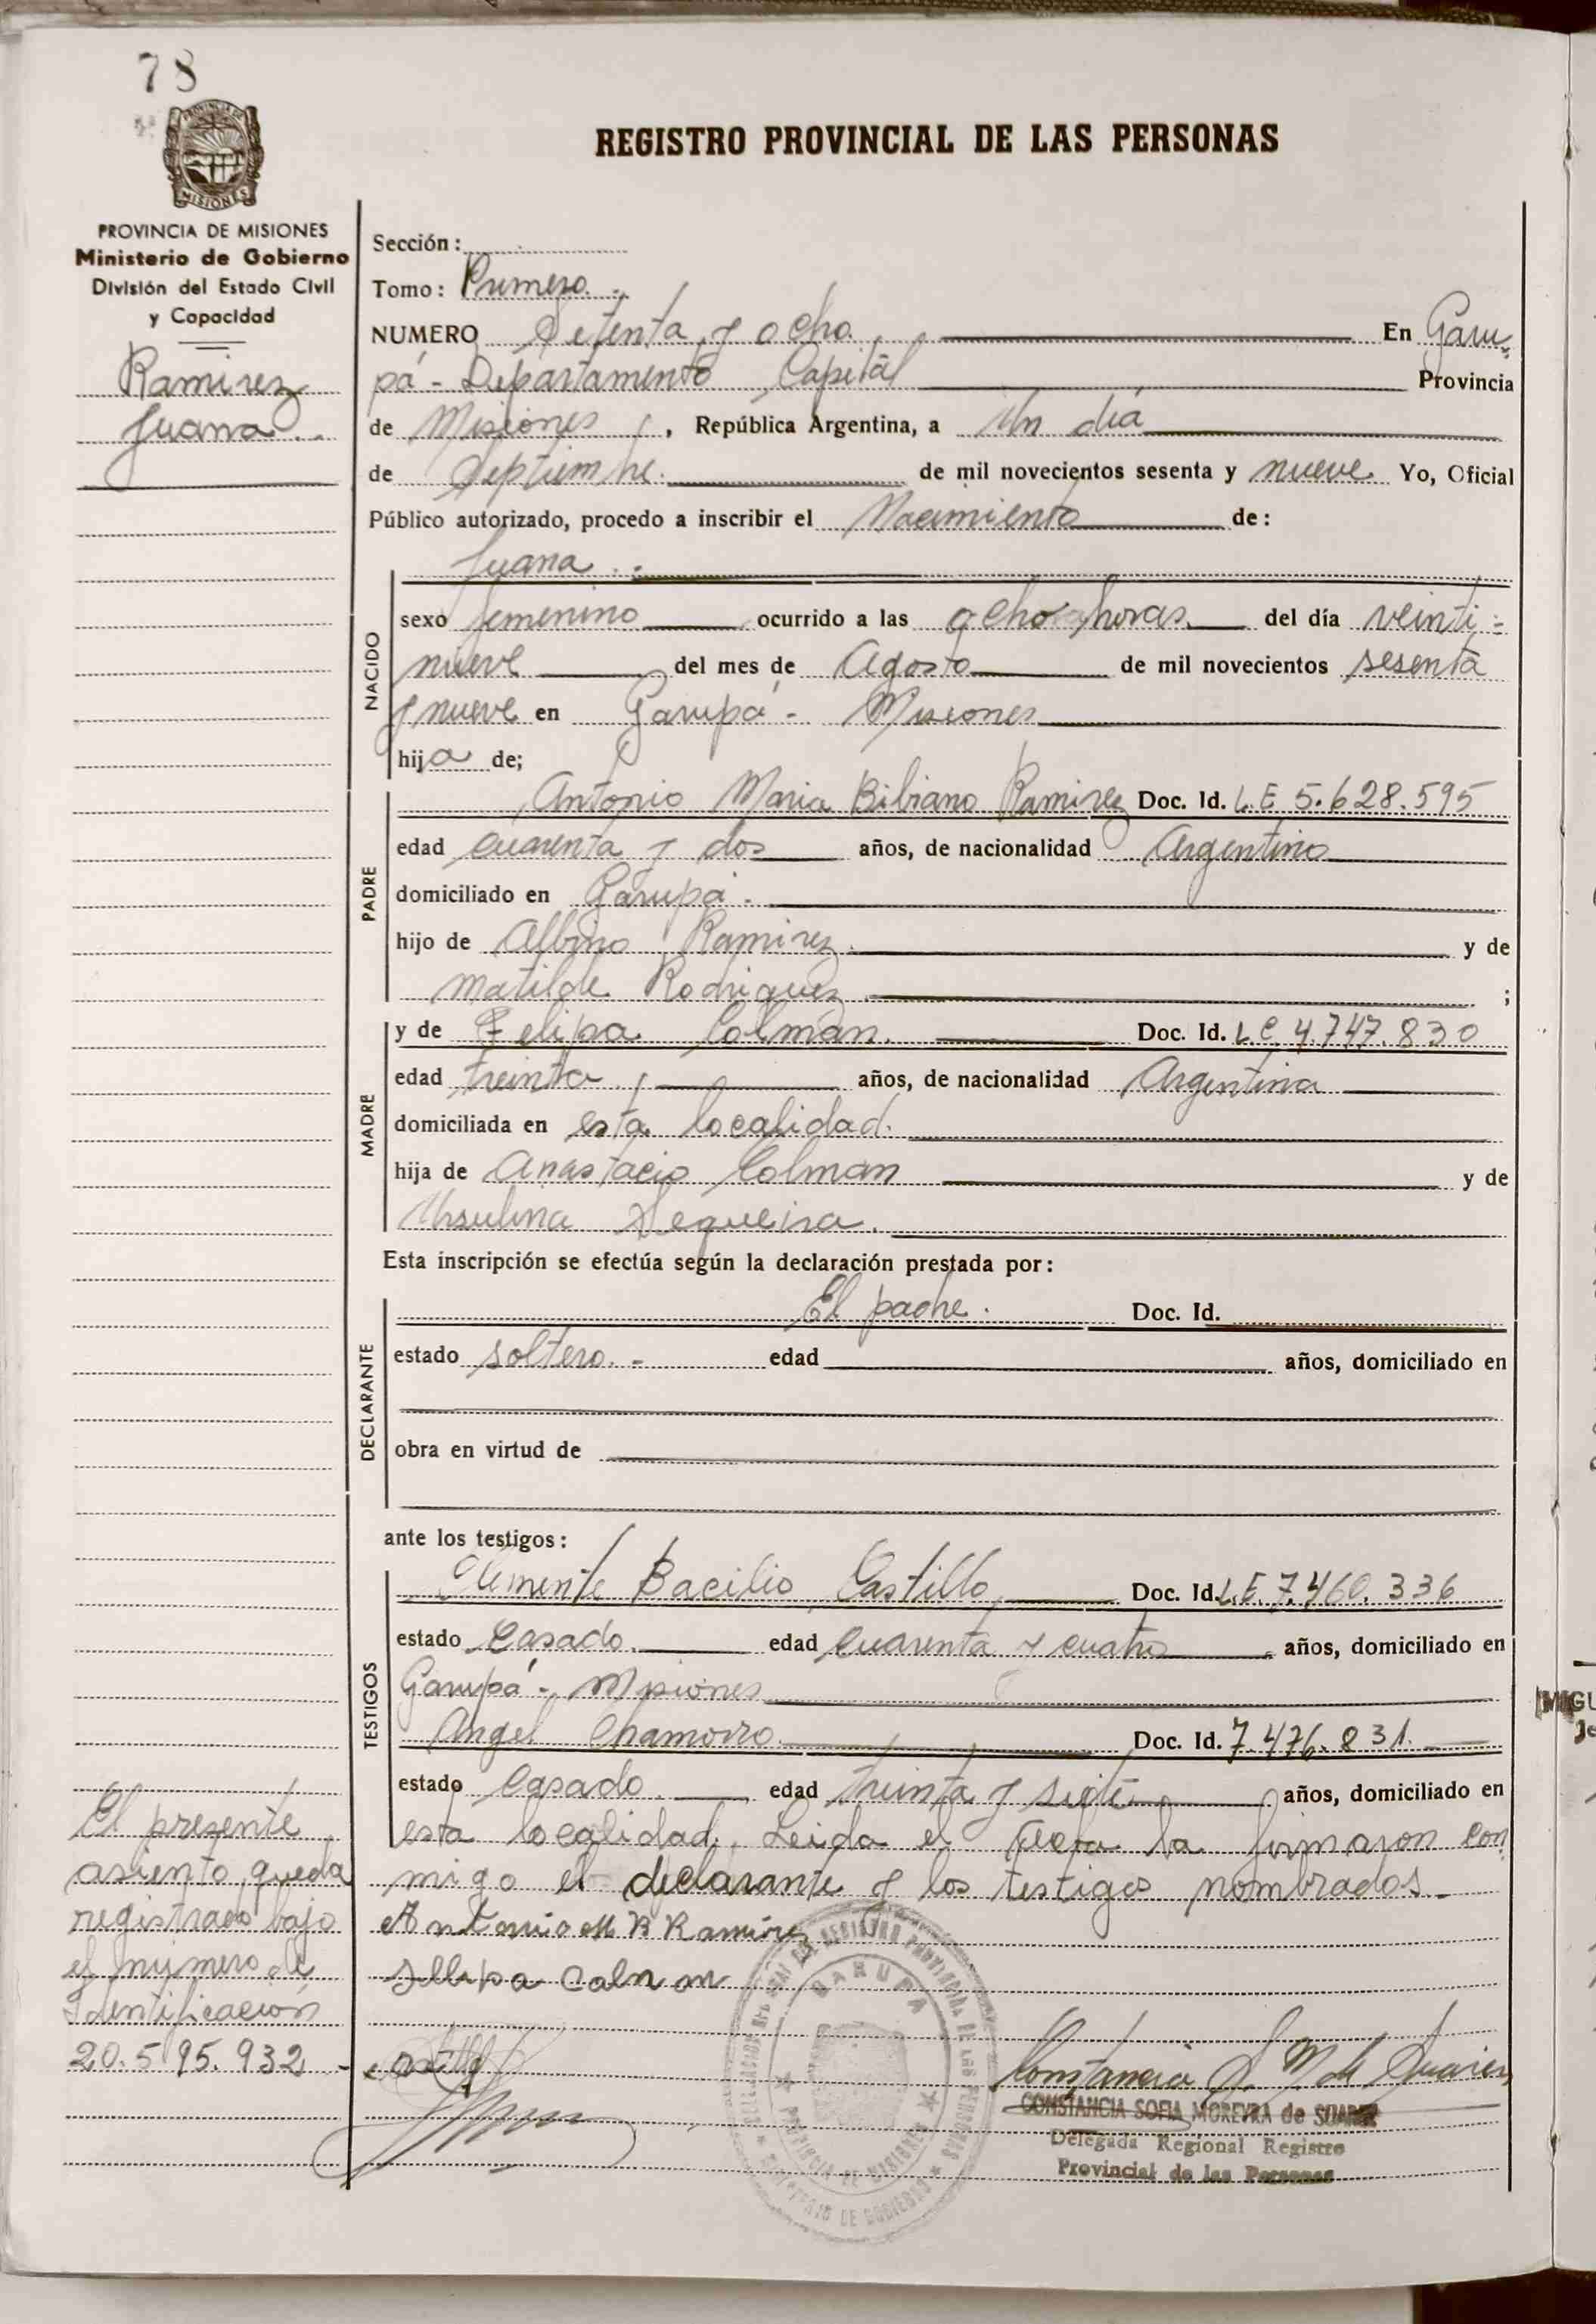 78
PROVINCIA DE
MISIONES
PROVINCIA DE MISIONES
Ministerio de Gobierno
División del Estado Civil
y Capacidad
Ramirez
Juana
REGISTRO PROVINCIAL DE LAS PERSONAS
Sección:
Tomo: Primero.-
NUMERO Setenta y ocho. En Garu-
pá - Departamento Capital Provincia
de Misiones, República Argentina, a Un día
de Septiembre. de mil novecientos sesenta y nueve Yo, Oficial
Público autorizado, procedo a inscribir el Nacimiento de:
Juana.-
NACIDO
sexo femenino ocurrido a las ocho horas. del día veinti-
nueve del mes de Agosto de mil novecientos sesenta
y nueve en Garupá - Misiones
hija de;
PADRE
Antonio Maria Bibiano Ramirez Doc. Id. L.E 5.628.595
edad cuarenta y dos años, de nacionalidad Argentino
domiciliado en Garupá.
hijo de Albino Ramirez. y de
Matilde Rodriguez ;
MADRE
y de Felipa Colman. Doc. Id. L.C. 4.747.830
edad treinta años, de nacionalidad Argentina
domiciliada en esta localidad.
hija de Anastacio Colman y de
Ursulina Sequeira.
Esta inscripción se efectúa según la declaración prestada por:
DECLARANTE
El padre. Doc. Id.
estado soltero.- edad años, domiciliado en
obra en virtud de
ante los testigos:
TESTIGOS
Clemente Bacilio Castillo Doc. Id. L.E. 7.460.336
estado Casado. edad cuarenta y cuatro años, domiciliado en
Garupá - Misiones
Angel Chamorro. Doc. Id. 7.476.831.
estado Casado. edad treinta y siete años, domiciliado en
esta localidad. Leida el acta la firmaron con
migo el declarante y los testigos nombrados.-
Antonio M B Ramirez
Colman
El presente
asiento queda
registrado bajo
el número de
Identificación
20.595.932-
GARUPA
PROVINCIA DE MISIONES
MINISTERIO DE GOBIERNO
Constancia S. M. de Suarez
CONSTANCIA SOFIA MOREYRA de SUAREZ
Delegada Regional Registro
Provincial de las Personas